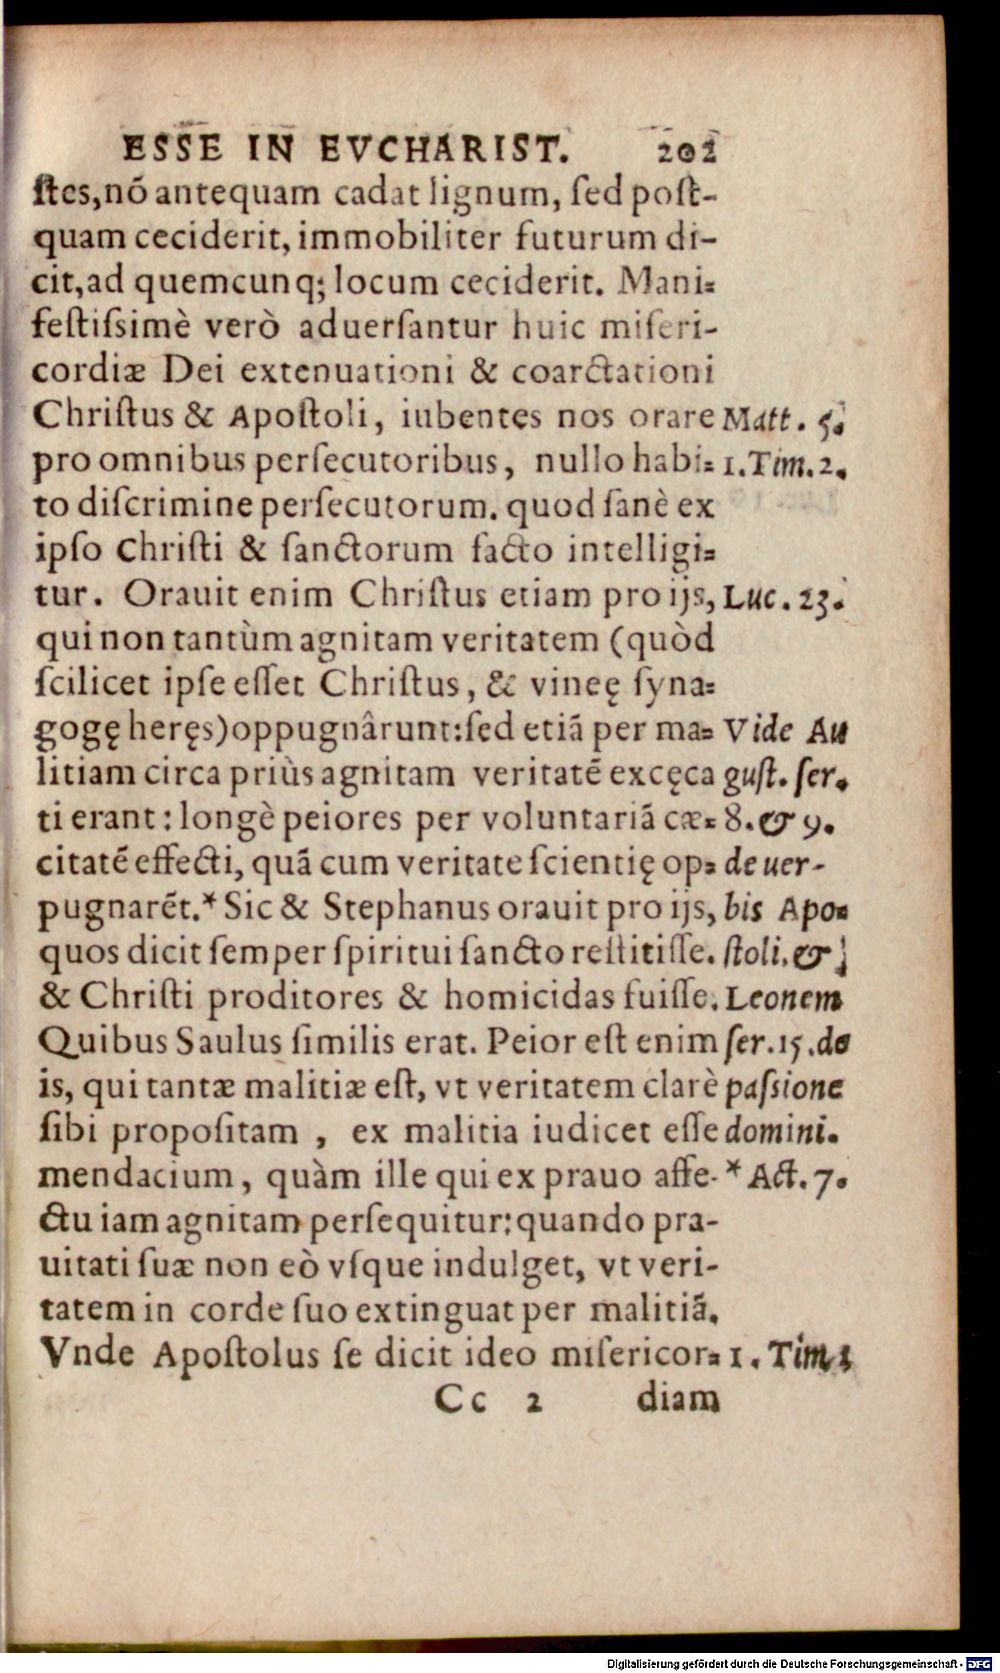 ESSE IN EVCHARIST. 202
ſtes,nõ antequam cadat lignum, ſed poſt-
quam ceciderit, immobiliter futurum di-
cit,ad quemcunq; locum ceciderit. Mani-
feſtiſsimè verò aduerſantur huic miſeri-
cordiæ Dei extenuationi & coarctationi
Chriſtus & Apoſtoli, iubentes nos orare Matt. 5.
pro omnibus perſecutoribus, nullo habi- 1.Tim.2.
to diſcrimine perſecutorum. quod ſanè ex
ipſo Chriſti & ſanctorum facto intelligi-
tur. Orauit enim Chriſtus etiam pro ijs, Luc. 23.
qui non tantùm agnitam veritatem (quòd
ſcilicet ipſe eſſet Chriſtus, & vineę ſyna-
gogę heręs) oppugnârunt: ſed etiã per ma- Vide Au
litiam circa priùs agnitam veritatẽ excęca guſt. ſer.
ti erant: longè peiores per voluntariã cæ- 8. & 9.
citatẽ effecti, quã cum veritate ſcientię op- de uer-
pugnarẽt.* Sic & Stephanus orauit pro ijs, bis Apo-
quos dicit ſemper ſpiritui ſancto reſtitiſſe. ſtoli. &
& Chriſti proditores & homicidas fuiſſe. Leonem
Quibus Saulus ſimilis erat. Peior eſt enim ſer.15.de
is, qui tantæ malitiæ eſt, vt veritatem clarè paſsione
ſibi propoſitam , ex malitia iudicet eſſe domini.
mendacium, quàm ille qui ex prauo affe- * Act. 7.
ctu iam agnitam perſequitur: quando pra-
uitati ſuæ non eò vſque indulget, vt veri-
tatem in corde ſuo extinguat per malitiã.
Vnde Apoſtolus ſe dicit ideo miſericor- 1. Tim. 1
Cc 2 diam
Digitalisierung gefördert durch die Deutsche Forschungsgemeinschaft - DFG